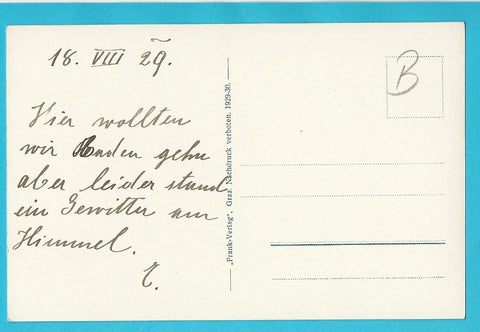 18. VIII 29.
Hier wollten
wir baden gehn
aber leider stand
ein Gewitter am
Himmel.
E.
„Frank-Verlag“, Graz. Nachdruck verboten. 1929-30.
B